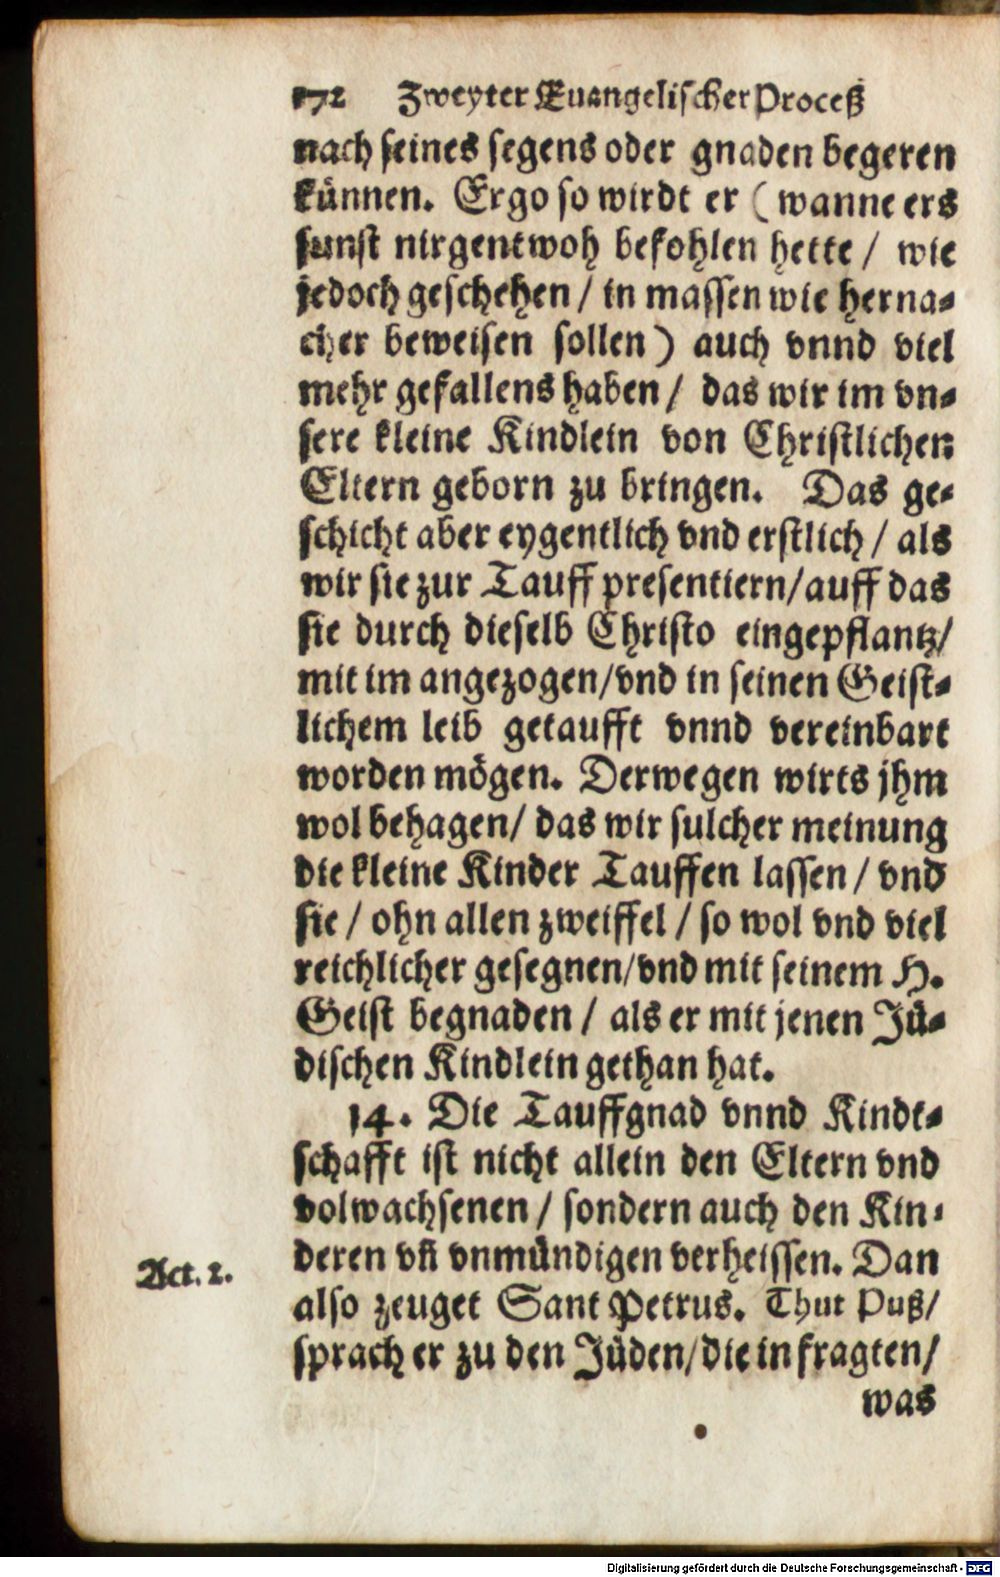 172 Zweyter Euangelischer Proceß
nach seines segens oder gnaden begeren
künnen. Ergo so wirdt er (wanne ers
sunst nirgentwoh befohlen hette / wie
jedoch geschehen / in massen wie herna-
cher beweisen sollen) auch vnnd viel
mehr gefallens haben / das wir im vn-
sere kleine Kindlein von Christlichen
Eltern geborn zu bringen. Das ge-
schicht aber eygentlich vnd erstlich / als
wir sie zur Tauff presentiern/auff das
sie durch dieselb Christo eingepflantz/
mit im angezogen/vnd in seinen Geist-
lichem leib getaufft vnnd vereinbart
worden mögen. Derwegen wirts jhm
wol behagen/ das wir sulcher meinung
die kleine Kinder Tauffen lassen / vnd
sie / ohn allen zweiffel / so wol vnd viel
reichlicher gesegnen/vnd mit seinem H.
Geist begnaden / als er mit jenen Jü-
dischen Kindlein gethan hat.
14. Die Tauffgnad vnnd Kindt-
schafft ist nicht allein den Eltern vnd
volwachsenen / sondern auch den Kin-
deren vñ vnmündigen verheissen. Dan
Act. 2.
also zeuget Sant Petrus. Thut Puß/
sprach er zu den Jüden/die in fragten/
was
Digitalisierung gefördert durch die Deutsche Forschungsgemeinschaft - DFG